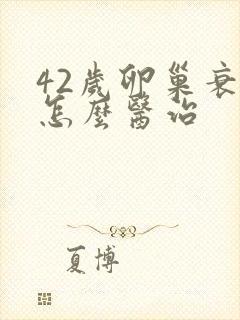 42歲卵巢衰
怎麼醫治
夏博